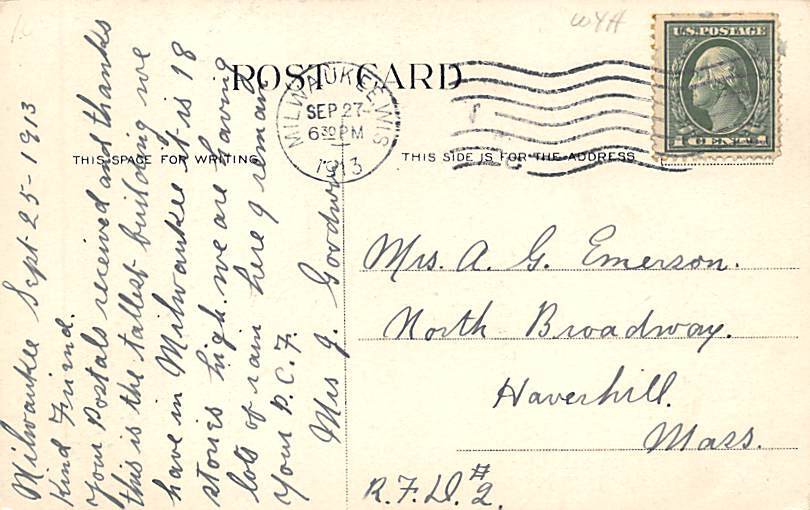 WYH
POST CARD
THIS SPACE FOR WRITING
THIS SIDE IS FOR THE ADDRESS
MILWAUKEE, WIS
SEP 27
6 30 PM
1913
U.S. POSTAGE
1 CENT 1
Milwaukee Sept-25-1913
Kind Friend.
Your Postals received and thanks
this is the tallest building we
have in Milwaukee it is 18
stories high. we are having
lots of rain here I remain
your P.C.F.
Mrs J. Goodwin
Mrs. A. G. Emerson.
North Broadway.
Haverhill.
Mass.
R.F.D. #2.